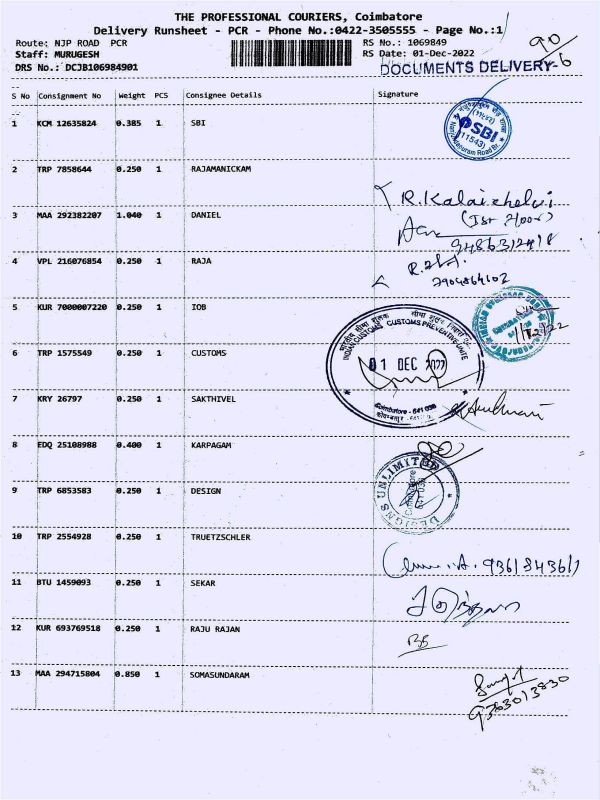 THE PROFESSIONAL COURIERS, Coimbatore
Delivery Runsheet - PCR - Phone No.:0422-3505555 - Page No.:1
Route: NJP ROAD PCR
RS No.: 1069849
Staff: MURUGESH
RS Date: 01-Dec-2022
DRS No.: DCJB106984901
DOCUMENTS DELIVERY
90
S No Consignment No Weight PCS Consignee Details Signature
1 KCM 12635824 0.385 1 SBI
SBI
(11543)
2 TRP 7858644 0.250 1 RAJAMANICKAM
R. Kalaichelvi
3 MAA 292382207 1.040 1 DANIEL
(Ist floor)
4 VPL 216076854 0.250 1 RAJA
7904864102
5 KUR 7000007220 0.250 1 IOB
INDIAN CUSTOMS CUSTOMS PREVENTIVE UNITE
01 DEC 2022
Coimbatore - 641 018
6 TRP 1575549 0.250 1 CUSTOMS
7 KRY 26797 0.250 1 SAKTHIVEL
8 EDQ 25108988 0.400 1 KARPAGAM
9 TRP 6853583 0.250 1 DESIGN
DESIGNS UNLIMITED
10 TRP 2554928 0.250 1 TRUETZSCHLER
11 BTU 1459093 0.250 1 SEKAR
12 KUR 693769518 0.250 1 RAJU RAJAN
13 MAA 294715804 0.850 1 SOMASUNDARAM
9363013830